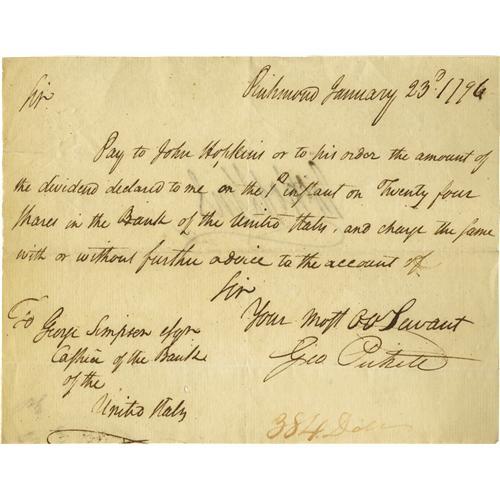 Richmond January 23d. 1796
Sir
Pay to John Hopkins or to his order the amount of
the dividend declared to me on the 1st instant on Twenty four
Shares in the Bank of the United States, and charge the same
with or without further advice to the account of
Sir
Your Most Ob Servant
Geo Pickett
To George Simpson esqr
Cashier of the Bank
of the
United States
384 Dolls